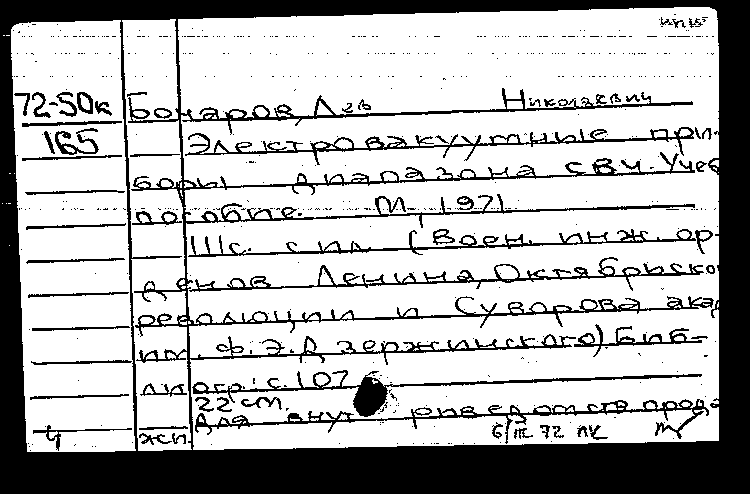 72-50к Бочаров, Лев Николаевич
165 Электровакуумные при-
боры диапазона СВЧ. Учеб
пособие. М., 1971
111 с. с ил. (Воен. инж. ор-
денов Ленина, Октябрьской
революции и Суворова акад
им. Ф.Э. Дзержинского) Биб-
лиогр: с. 107
22 см.
Для внут
4 жп. 6/III 72